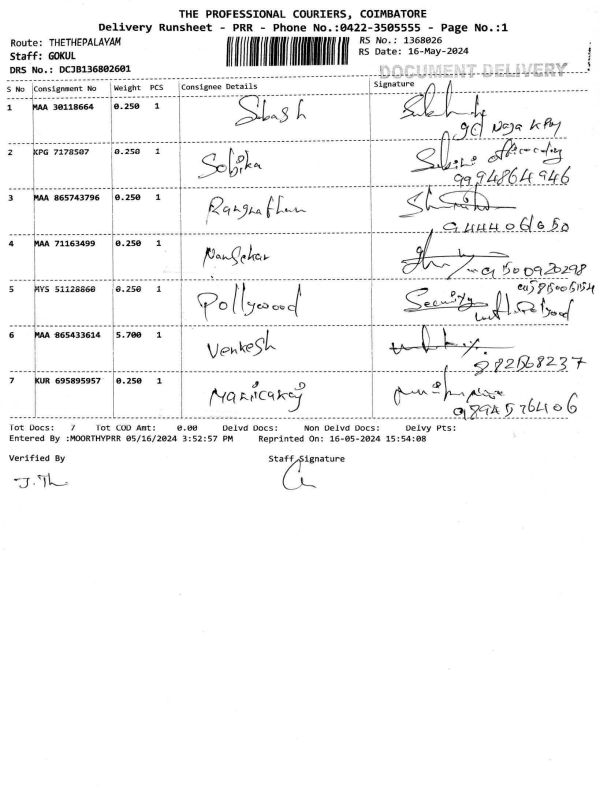 THE PROFESSIONAL COURIERS, COIMBATORE
Delivery Runsheet - PRR - Phone No.:0422-3505555 - Page No.:1
Route: THETHEPALAYAM RS No.: 1368026
Staff: GOKUL RS Date: 16-May-2024
DRS No.: DCJB136802601 DOCUMENT DELIVERY
S No Consignment No Weight PCS Consignee Details Signature
1 MAA 30118664 0.250 1 Subash
2 KPG 7178507 0.250 1 Sobika
9994864946
3 MAA 865743796 0.250 1
4 MAA 71163499 0.250 1
9500920298
5 MYS 51128860 0.250 1 Pollywood Security
6 MAA 865433614 5.700 1 Venkesh
7 KUR 695895957 0.250 1
Tot Docs: 7 Tot COD Amt: 0.00 Delvd Docs: Non Delvd Docs: Delvy Pts:
Entered By :MOORTHYPRR 05/16/2024 3:52:57 PM Reprinted On: 16-05-2024 15:54:08
Verified By Staff Signature